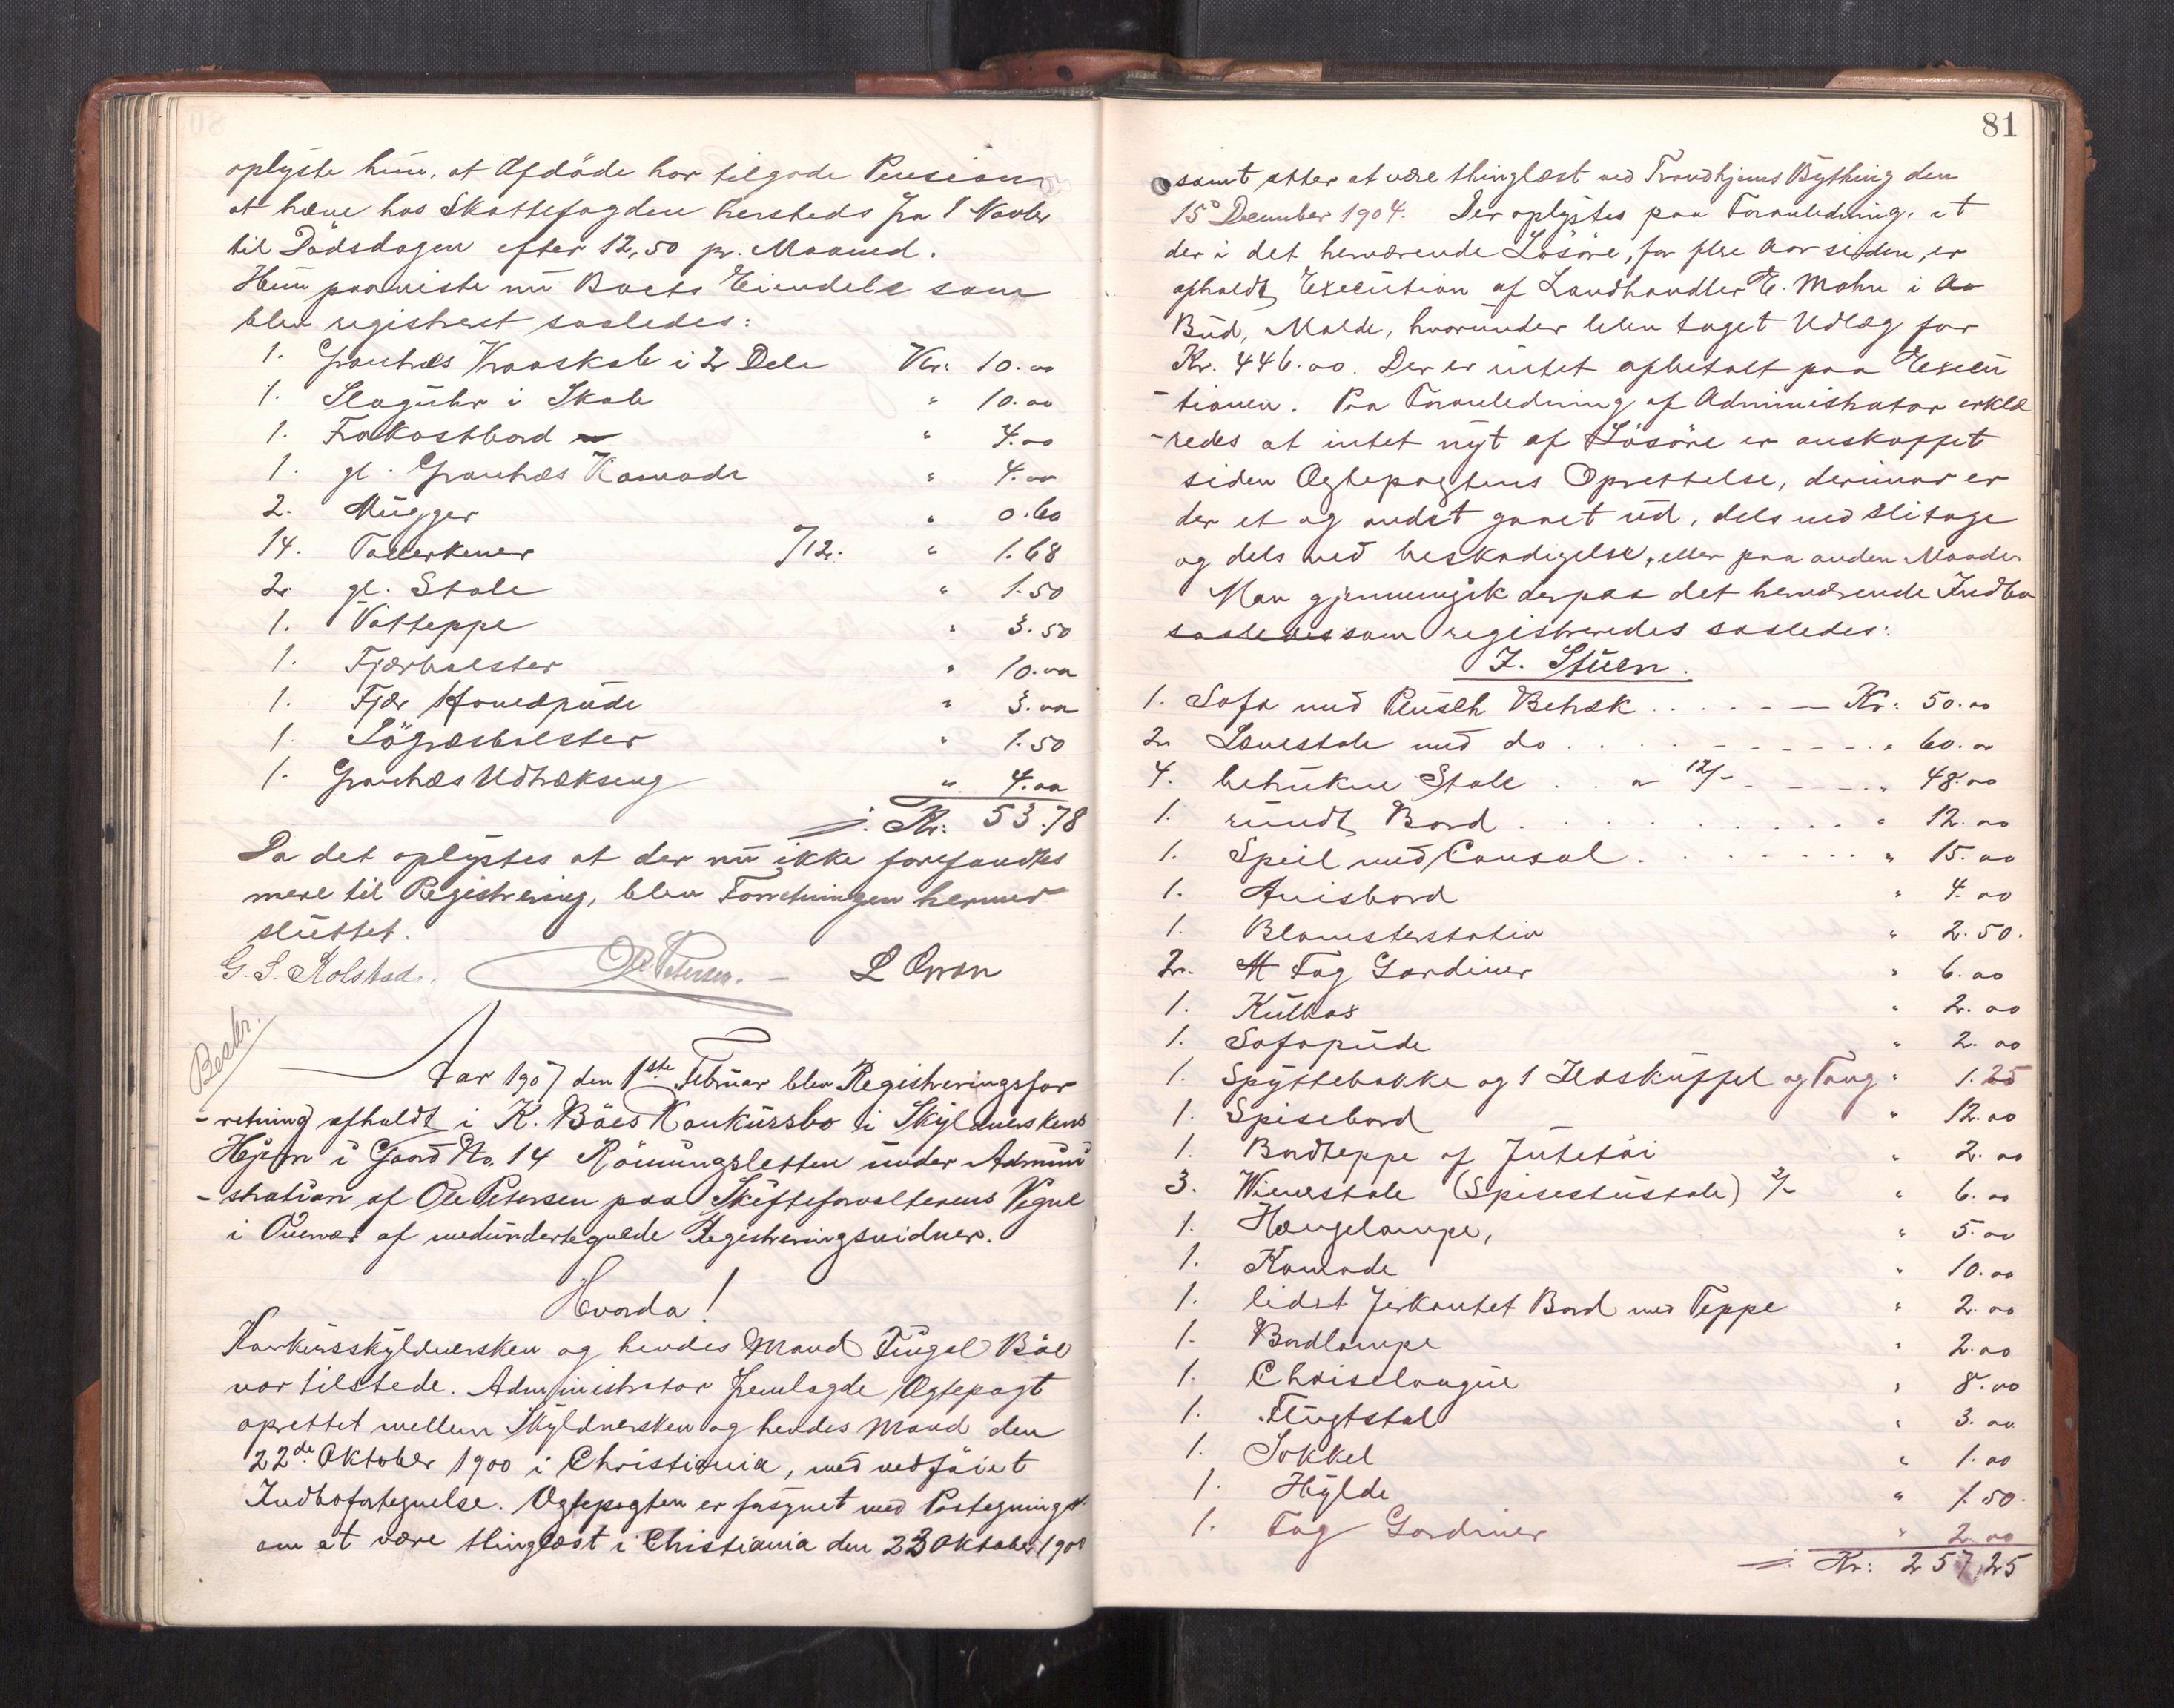 oplyste hun, at Afdöde har tilgode Pension
at hæve hos Skattefogden hersteds fra 1 Novbr
til Dödsdagen efter 12,50 pr. Maaned.
Hun paaviste nu Boets Eiendele som
blev registreret saaledes:
1. Grantræs Kraaskab i 2 Dele Kr: 10.00
1. Slaguhr i Skab " 10.00
1. Frokostbord " 4.00
1. gl. Grantræs Komode " 4.00
2. Mugger " 0.60
14. Tallerkener /12. " 1.68
2. gl. Stole " 1.50
1. Vatteppe " 3.50
1. Fjærbolster " 10.00
1. Fjær Hovedpude " 3.00
1. Sögræsbolster " 1.50
1. Grantræs Udtrækseng " 4.00
Kr: 53.78
Da det oplystes at der nu ikke forefandtes
mere til Registrering, blev Forretningen hermed
sluttet.
G. S. Kolstad. Ole Petersen. L Orren
Beskr.
Aar 1907 den 1ste Februar blev Registreringsfor
-retning afholdt i K. Böes Konkursbo i Skyldnerskens
Hjem i Gaard No. 14 Rönningsletten under Admini
-stration af Ole Petersen paa Skifteforvalterens Vegne
i Overvær af medundertegnede Registreringsvidner.
Hvorda!
Konkursskyldnersken og hendes Mand Fingal Böe
var tilstede. Administrator fremlagde Ægtepagt
oprettet mellem Skyldnersken og hendes Mand den
22de Oktober 1900 i Christiania, med vedföiet
Indbofortegnelse. Ægtepagten er forsynet med Paategning
om at være thinglæst i Christiania den 23 Oktober 1900
81
samt atter at være thinglæst ved Trondhjems Bything den
15 December 1904. Der oplystes paa Foranledning, at
der i det herværende Lösöre, for flere Aar siden, er
afholdt Execution af Landhandler E. Mohn i Aa
Bud, Molde, hvorunder blev taget Udlæg for
Kr. 446.00. Der er intet afbetalt paa Execu
-tionen. Paa Foranledning af Administrator erklæ
-redes at intet nyt af Lösöre er anskaffet
siden Ægtepagtens Oprettelse, derimod er
der et og andet gaaet ud, dels ved Slitage
og dels ved beskadigelse, eller paa anden Maade.
Man gjennemgik derpaa det herværende Indbo
saaledes som registreredes saaledes:
I. Stuen.
1. Sofa med Plusch Betræk Kr: 50.00
2 Lænestole med do " 60.00
4. betrukne Stole a 12/- " 48.00
1. rundt Bord " 12.00
1. Speil med Consol " 15.00
1. Avisbord " 4.00
1. Blomsterstativ " 2.50.
2. Fag Gardiner " 6.00
1. Kulbox " 2.00
1. Sofapude " 2.00
1. Spyttebakke og 1 Ildskuffel og Tang " 1.25
1. Spisebord " 12.00
1. Bordteppe af Jutetöi " 2.00
3. Wienerstole (Spisestustole) 2/- " 6.00
1. Hængelampe, " 5.00
1. Komode " 10.00
1. lidet firkantet Bord med Teppe " 2.00
1. Bordlampe " 2.00
1. Chaiselongue " 8.00
1. Flugtstol " 3.00
1. Sokkel " 1.00
1. Hylde " 1.50.
1. Fag Gardiner " 2.00
Kr: 257.25